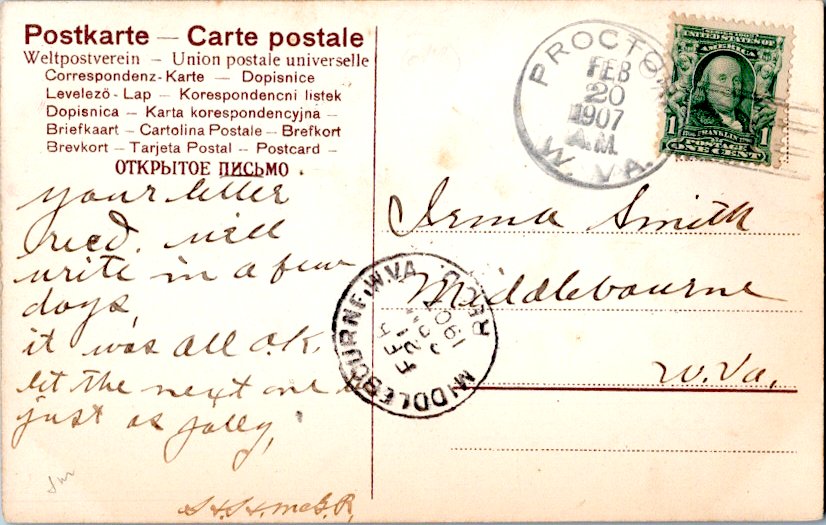 Postkarte — Carte postale
Weltpostverein — Union postale universelle
Correspondenz-Karte — Dopisnice
Levelező-Lap — Korespondencni listek
Dopisnica — Karta korespondencyjna —
Briefkaart — Cartolina Postale — Brefkort
Brevkort — Tarjeta Postal — Postcard —
ОТКРЫТОЕ ПИСЬМО .
your letter
recd. will
write in a few
days,
it was all o.k.
let the next one
just as jolly,
PROCTOR
FEB
20
1907
A.M.
W. VA.
UNITED STATES OF
AMERICA
FRANKLIN
1 1
POSTAGE
ONE CENT
Irma Smith
Middlebourne
W.Va.
MIDDLEBOURNE, W.VA. REC'D.
FEB
21
1907